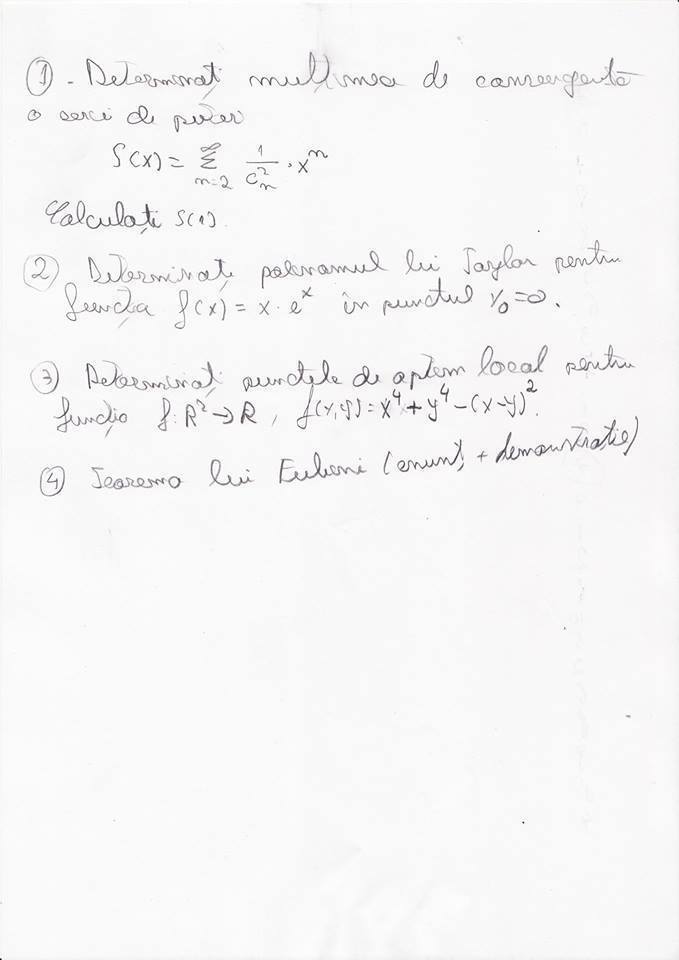 ① - Determinați mulțimea de convergență
a seriei de puteri
S(x) = ∞ Σ n=2 1/C²ₙ · xⁿ
Calculați S(1).
② Determinați polinomul lui Taylor pentru
funcția f(x) = x · eˣ în punctul x₀=0.
③ Determinați punctele de optem local pentru
funcția f: R² → R, f(x,y) = x⁴ + y⁴ - (x-y)².
④ Teorema lui (enunț + demonstrație)